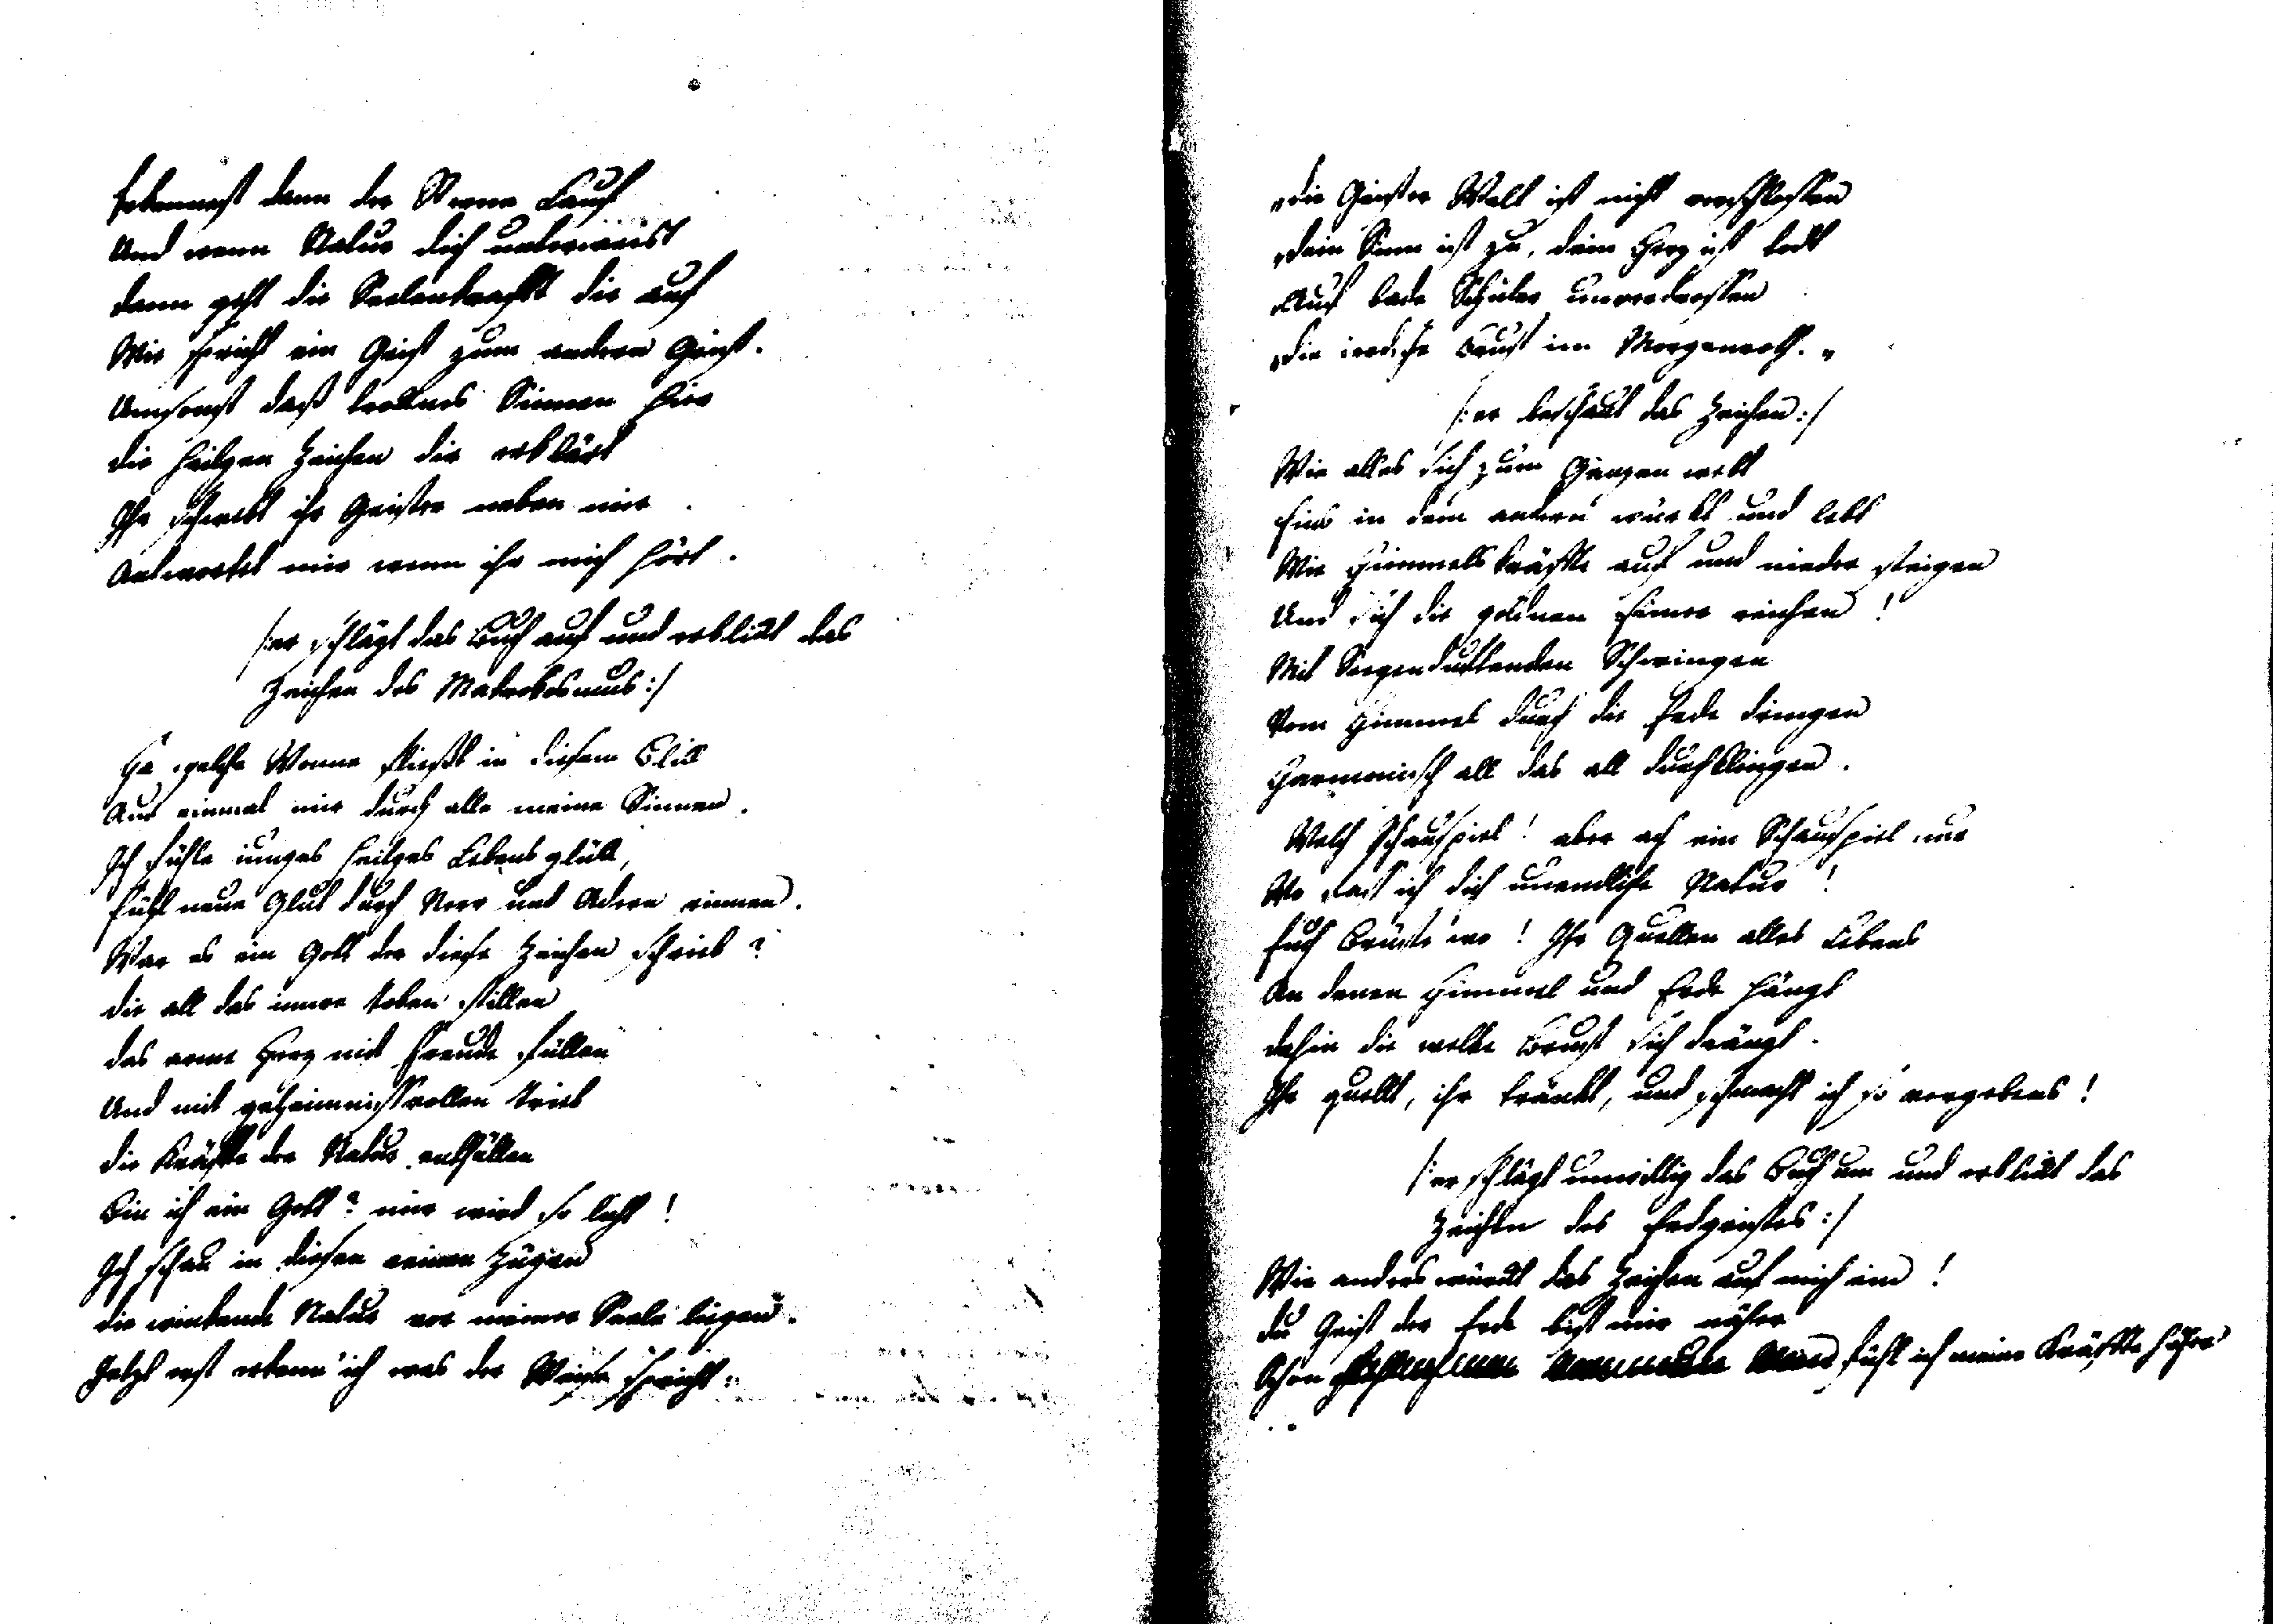 Erkennest dann der Sterne Lauf
Und wenn Natur dich unterweist
Dann geht die Seelenkrafft dir auf
Wie spricht ein Geist zum andern Geist.
Umsonst daß trocknes Sinnen hier
Die heilgen Zeichen dir erklärt
Ihr schwebt ihr Geister neben mir
Antwortet mir wenn ihr mich hört.
/:er schlägt das Buch auf und erblickt das
Zeichen des Makrokosmus:/
Ha welche Wonne fliesst in diesem Blick
Auf einmal mir durch alle meine Sinnen.
Ich fühle iunges heilges Lebensglück,
Fühl neue Glut durch Nerv und Adern rinnen.
War es ein Gott der diese Zeichen schrieb?
Die all das innre toben stillen
Das arme Herz mit Freude füllen
Und mit geheimnissvollen trieb
Die Kräffte der Natur enthüllen
Bin ich ein Gott? mir wird so licht!
Ich schau in diesen reinen Zügen
Die würkende Natur vor meiner Seele liegen.
Jetzt erst erkenn' ich was der Weise spricht:
„Die Geister Welt ist nicht verschlossen
„Dein Sinn ist zu, dein Herz ist todt
„Auf bade Schüler unverdrossen
„Die irrdsche Brust im Morgenroth."
/:er beschaut das Zeichen:/
Wie alles sich zum Ganzen webt
Eins in dem andern würkt und lebt
Wie Himmelskräffte auf und nieder steigen
Und sich die goldnen Eimer reichen!
Mit Seegenduftenden Schwingen
Vom Himmel durch die Erde dringen
Harmonisch all das all durchklingen.
Welch Schauspiel! aber ach ein Schauspiel nur
Wo fass ich dich unendliche Natur!
Euch Brüste wo! Ihr Quellen alles Lebens
An denen Himmel und Erde hängt
Dahin die welke Brust sich drängt.
Ihr quellt, ihr tränckt, und schmacht ich so vergebens!
/:er schlägt unwillig das Buch um und erblickt das
Zeichen des Erdgeistes:/
Wie anders würckt das Zeichen auf mich ein!
Du Geist der Erde bist mir näher
Schon fühl ich meine Kräffte höher